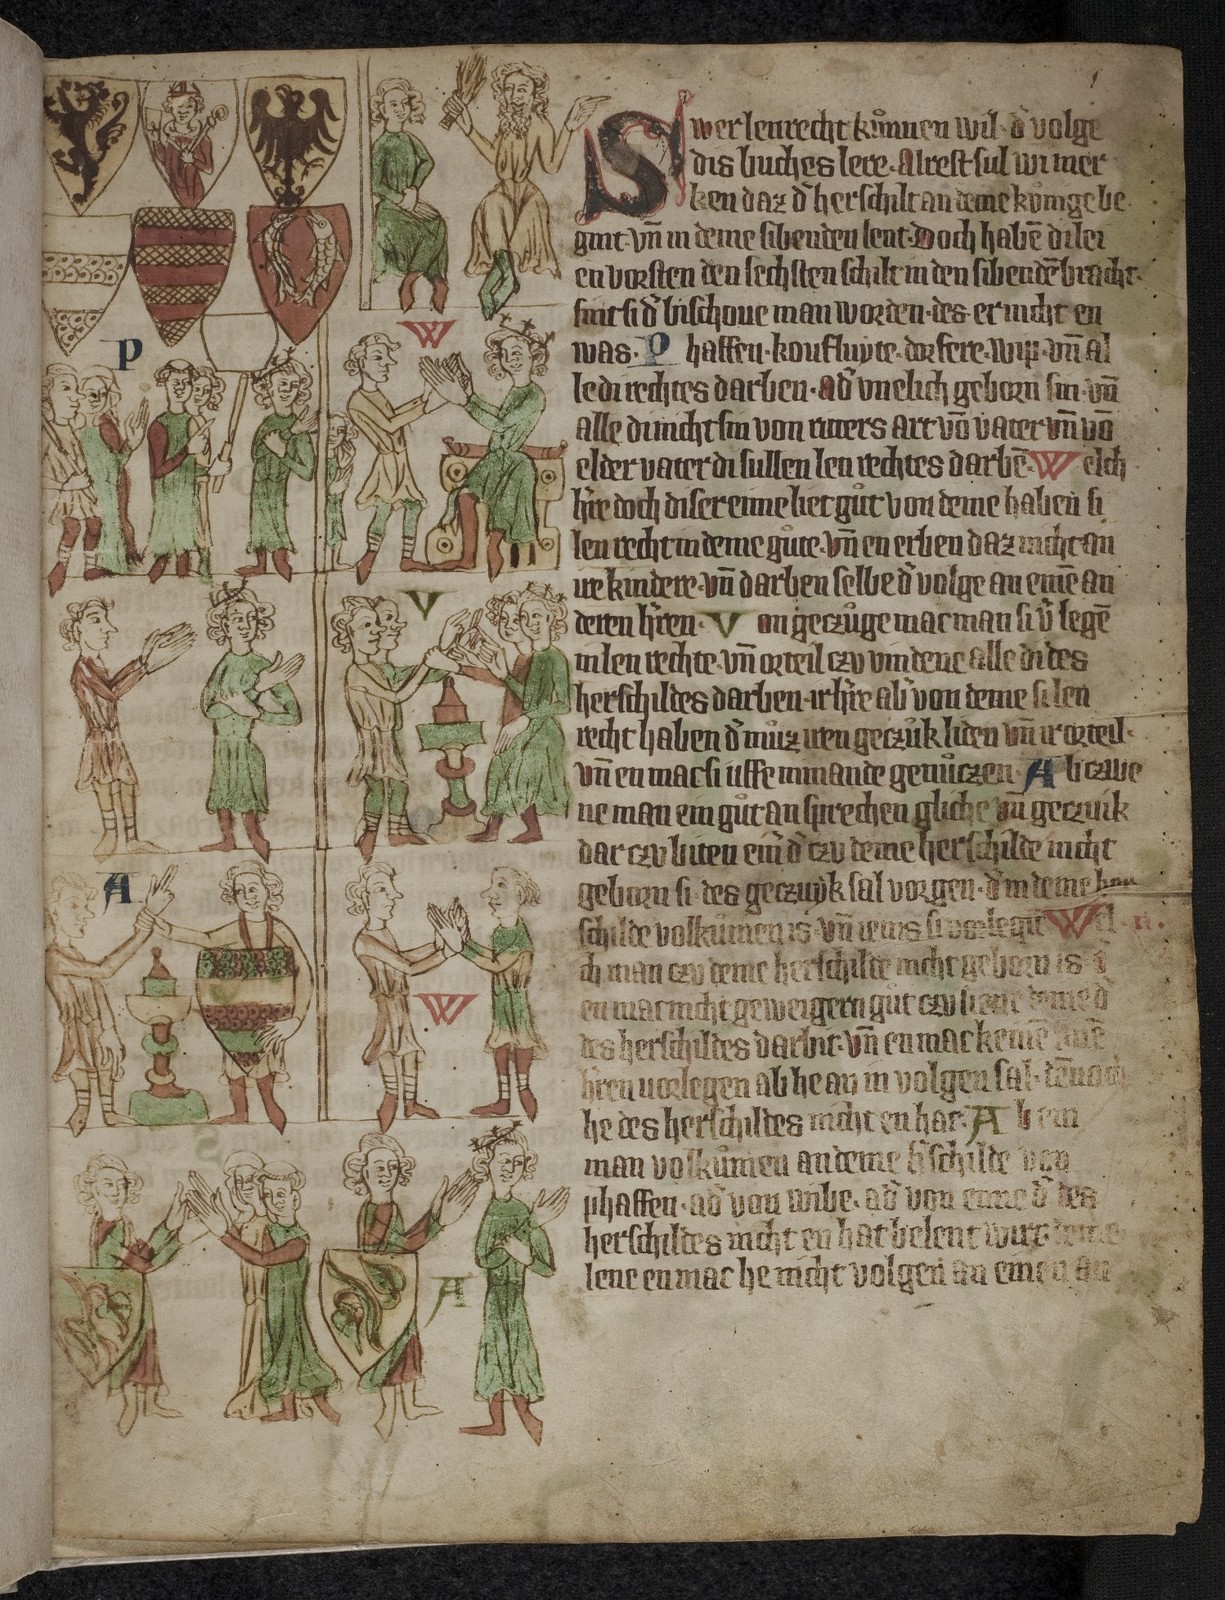 Swer lenrecht kůnnen wil · d̄ volge
dis buches lere · Alrest sul wi mer
ken daz d̄ herschilt an deme kůnige be
gint · vn̄ in deme sibenden lent · Doch habē di lei
en vorsten den sechsten schilt in den sibendē bracht ·
sint si d̄ bischoue man worden · des er nicht en
was · Phaffen · koufluyte · dorfere · wip · vn̄ al
le di rechtes darben · ad̄ vnelich geborn sin · vn̄
alle di nicht sin von ritters art vō vater vn̄ vō
elder vater di sullen len rechtes darbē · Welch
h̄re doch diser eime liet gůt von deme haben si
len recht in deme gůte · vn̄ en erben daz nicht an
ire kindere · vn̄ darben selbe d̄ volge an eimē an
deren h̄ren · Von geczůge mac man si v̄legē
in len rechte · vn̄ orteil czv vindene alle di des
herschildes darben · ir h̄re ab̄ von deme si len
recht haben d̄ můz iren geczůk liden vn̄ ir orteil ·
vn̄ en mac si uffe nimande genůczen · Ab czwe
ne man ein gůt an sprechen gliche vn̄ geczuik
dar czv biten ein̄ d̄ czv deme herschilde nicht
geborn si · des geczuyk sal vorgen · d̄ in deme her
schilde volkůmen is · vn̄ ienis si vorlegit Wel
ch man czv deme herschilde nicht geborn is
en mac nicht geweigern gůt czv liene deme d̄
des herschildes darbit · vn̄ en mac keinē
h̄ren vorlegen ab he an in volgen sal ·
he des herschildes nicht en hat · Ab ein
man volkůmen an deme h̄schilde von
phaffen · ad̄ von wibe · ad̄ von eime d̄ des
herschildes nicht en hat belent wirt · deme
lene en mac he nicht volgen an einen an
P
W
V
A
W
A